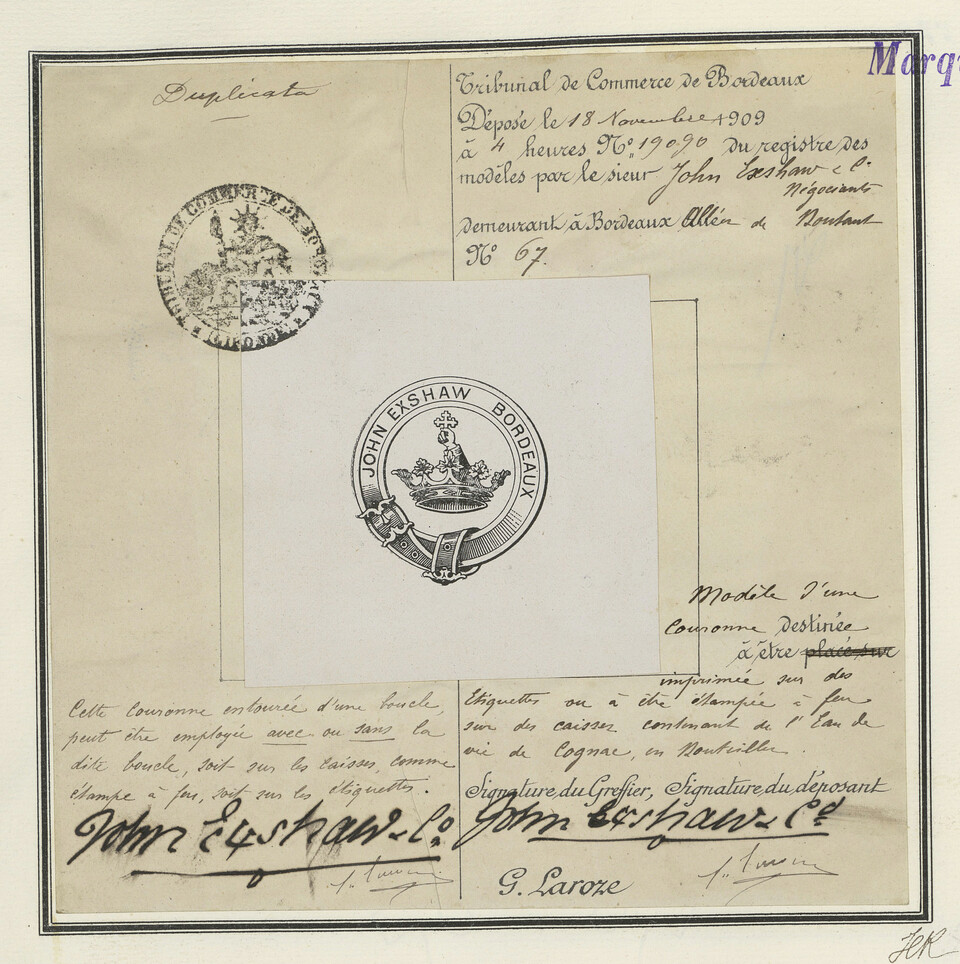 Marq
Duplicata
Tribunal de Commerce de Bordeaux
Déposé le 18 Novembre 1909
à 4 heures No. 19090 du registre des
modèles par le sieur John Exshaw & Co
Négociants
demeurant à Bordeaux Allées de Boutaut
No 67.
TRIBUNAL DE COMMERCE DE BORDEAUX
(GIRONDE)
JOHN EXSHAW BORDEAUX
Modèle d'une
Couronne destinée
à être placé sur
imprimée sur des
Etiquettes ou à être étampée à feu
sur des caisses contenant de l'Eau de
vie de Cognac, en Bouteilles.
Cette Couronne entourée d'une boucle,
peut être employée avec ou sans la
dite boucle, soit sur les caisses, comme
étampe à feu, soit sur les étiquettes.
Signature du Greffier, Signature du déposant
John Exshaw & Co.
John Exshaw & Co
G. Laroze
HR